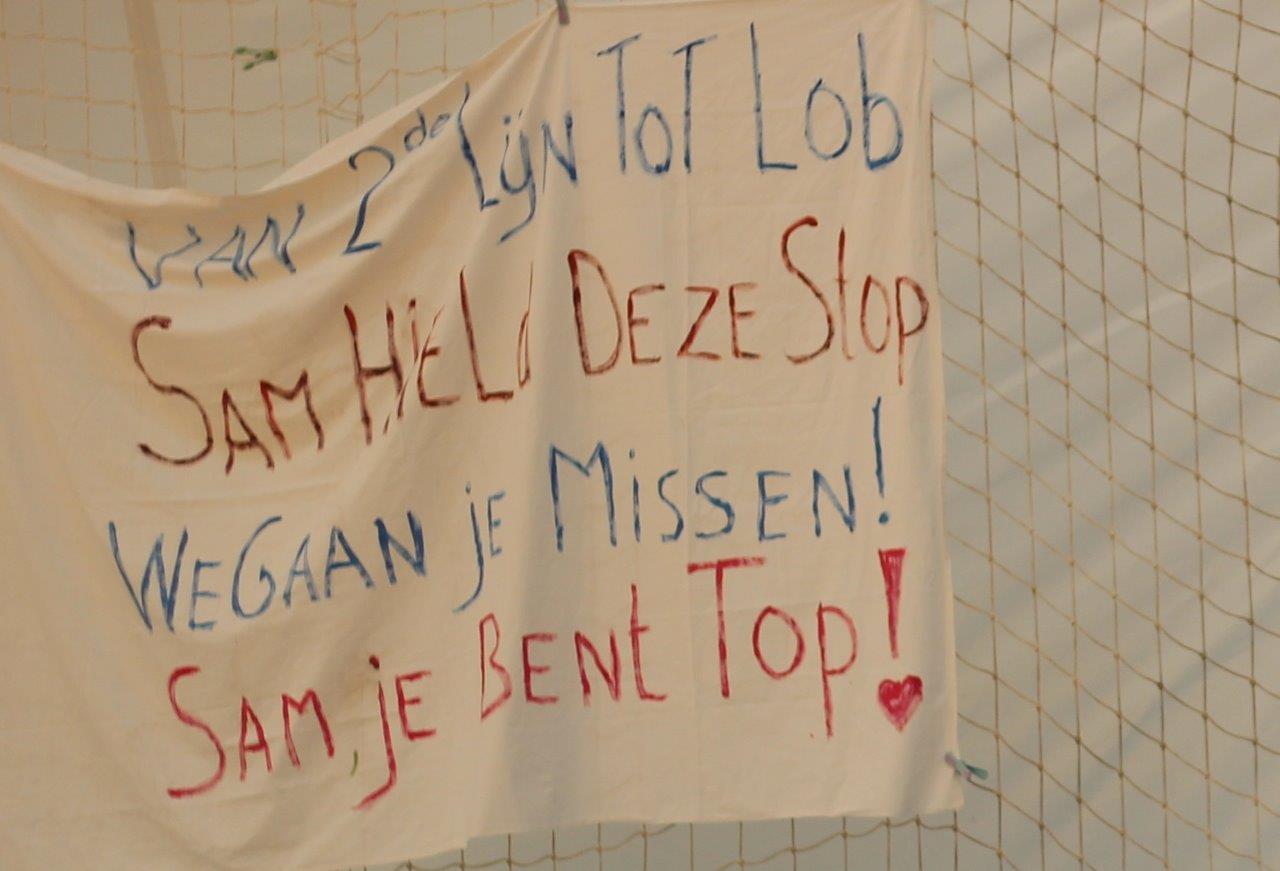 VAN 2de Lijn ToT Lob
SAM HiELd DEZE Stop
WE GAAN jE MiSSEN!
SAM, jE BENt Top!